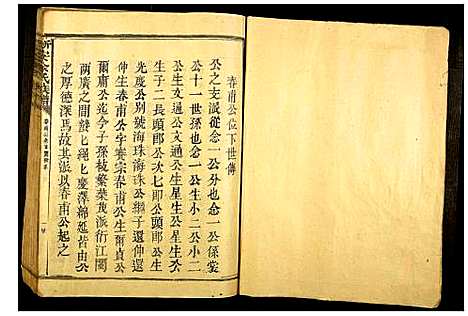 春甫公位下世傳
公之支派從念一公分也念一公係裳
公十一世孫也念一公生小二公小二
公生文通公文通公生星生公星生公
生子二長頭郎公次七郎公頭郎公生
光慶公別號海珠海珠公繼子還伸還
伸生春甫公字賽宗春甫公生爾貞公
爾庸公迄今子孫椒繁葉茂派衍江閩
兩廣之間螽斯繩繩慶澤綿延皆由公
之厚德深焉故其派以春甫公起之